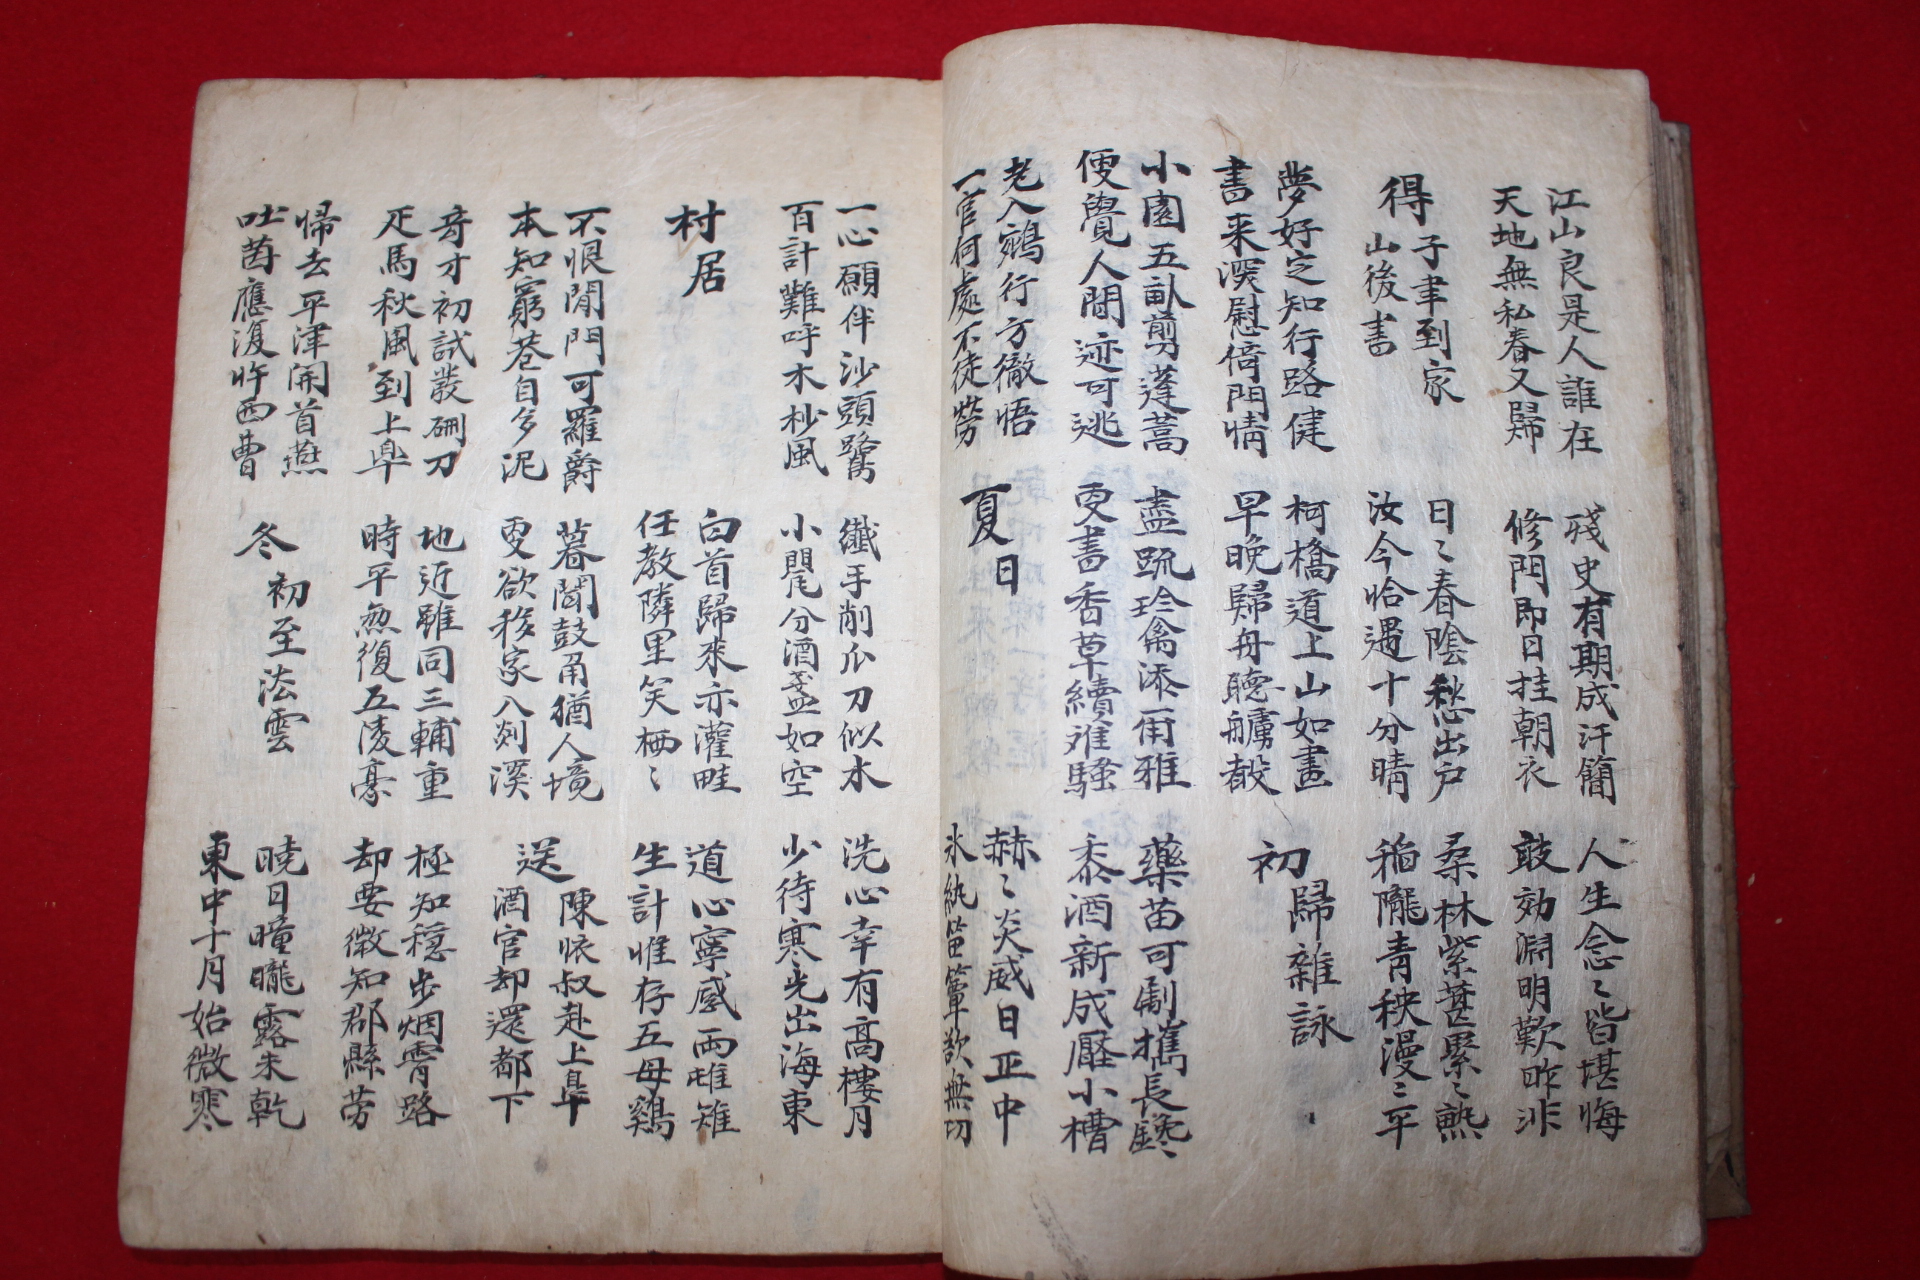 江山良是人誰在
天地無私春又歸
殘史有期成汗簡
修門即日挂朝衣
人生念〻皆堪悔
敢効淵明歎昨非
得子聿到家
山後書
日〻春陰愁出戶
汝今恰遇十分晴
桑林紫葚累〻熟
稻隴青秧漫〻平
夢好定知行路健
書来深慰倚門情
柯橋道上山如畫
早晚歸舟聽艣聲
初歸雜詠
小園五畝剪蓬蒿
便覺人間迹可逃
盡疏珍禽添爾雅
更書香草續離騷
藥苗可劚攜長鑱
黍酒新成壓小槽
老入鵷行方徹悟
一官何處不徒勞
夏日
赫〻炎威日正中
氷紈笛簟欲無功
一心願伴沙頭鷺
百計難呼木杪風
纖手削瓜刀似水
小鬟分酒盞如空
洗心幸有高樓月
少待寒光出海東
村居
白首歸來亦灌畦
任教隣里笑栖〻
道心寧感兩雌雉
生計惟存五母鷄
不恨閒門可羅爵
本知窮巷自多泥
暮聞鼓角猶人境
更欲移家入剡溪
送陳懷叔赴上皐
酒官却還都下
竒才初試發硎刀
疋馬秋風到上皐
地近雖同三輔重
時平無復五陵豪
極知穩步烟霄路
却要微知郡縣勞
歸去平津開首燕
吐茵應復忤西曹
冬初至法雲
曉日曈曨露未乾
東中十月始微寒